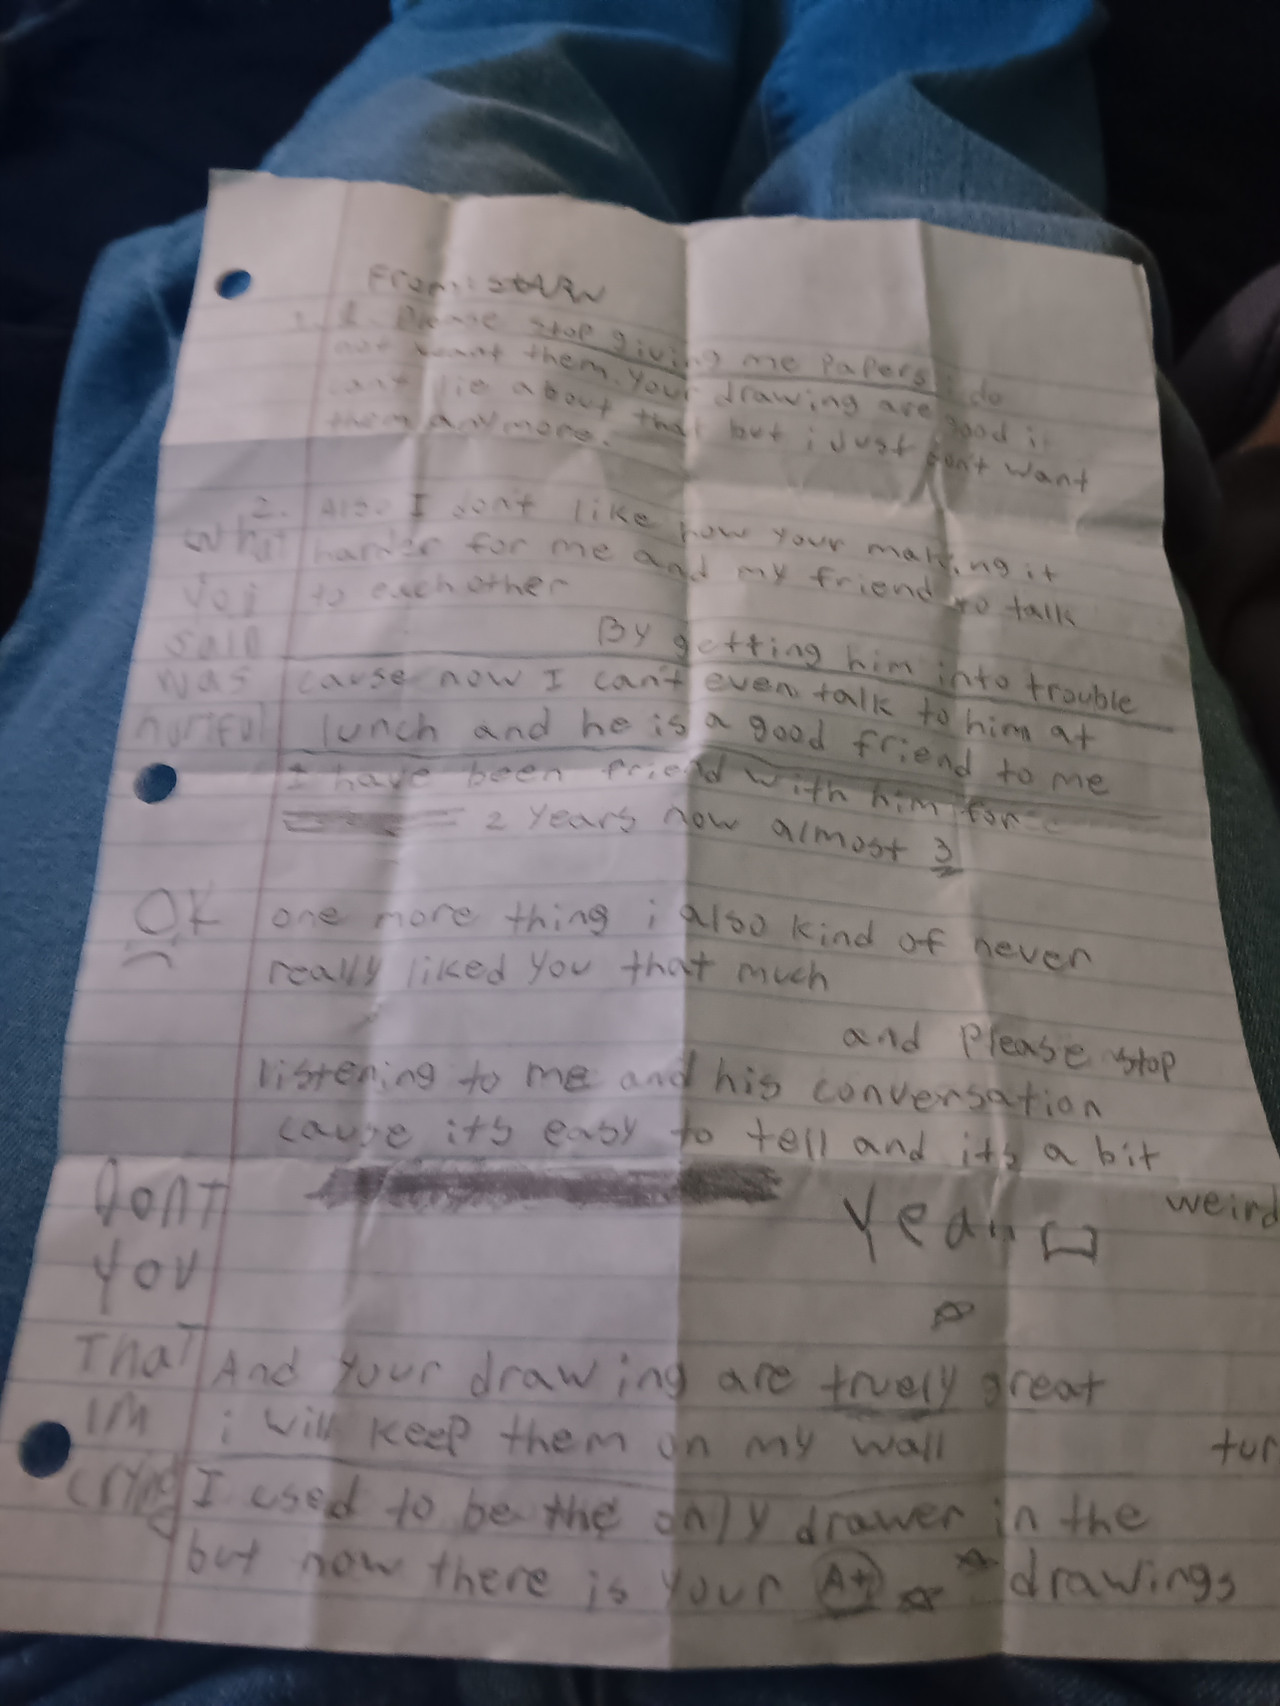 From:
1. Please stop giving me Papers i do
not want them. Your drawing are good i
cant lie about that but i just don't want
them anymore.
2. Also I don't like how your making it
harder for me and my friend to talk
to each other
What
You
said
was
hurtful
By getting him into trouble
cause now I can't even talk to him at
lunch and he is a good friend to me
I have been friend with him for
2 Years now almost 3
OK
one more thing i also kind of never
really liked you that much
and Please stop
listening to me and his conversation
cause its easy to tell and its a bit
weird
Yeah
Dont
You
That
IM
crying
And your drawing are truely great
i will keep them on my wall
tur
I used to be the only drawer in the
but now there is your A+ drawings